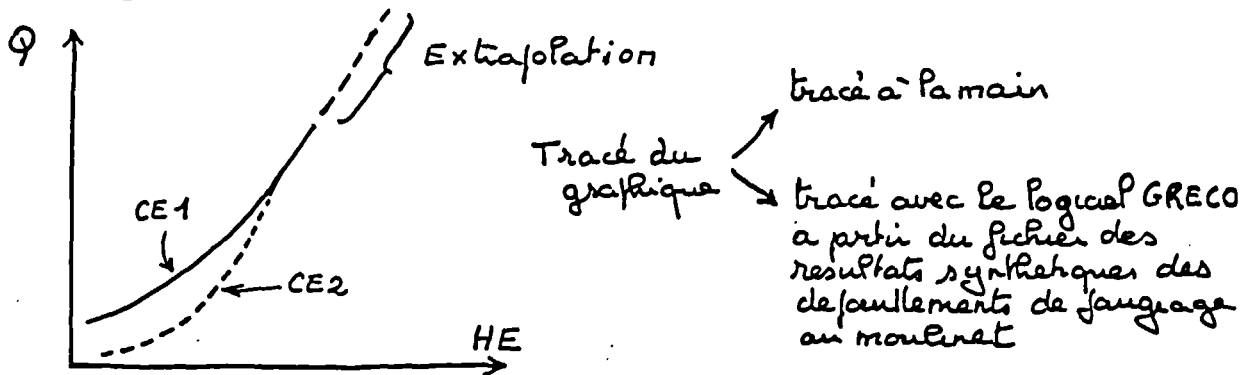 Q
Extrapolation
CE1
CE2
HE
Tracé du
graphique
tracé à la main
tracé avec le logiciel GRECO
a partir du fichier des
resultats synthetiques des
depouillements de jaugeage
au moulinet